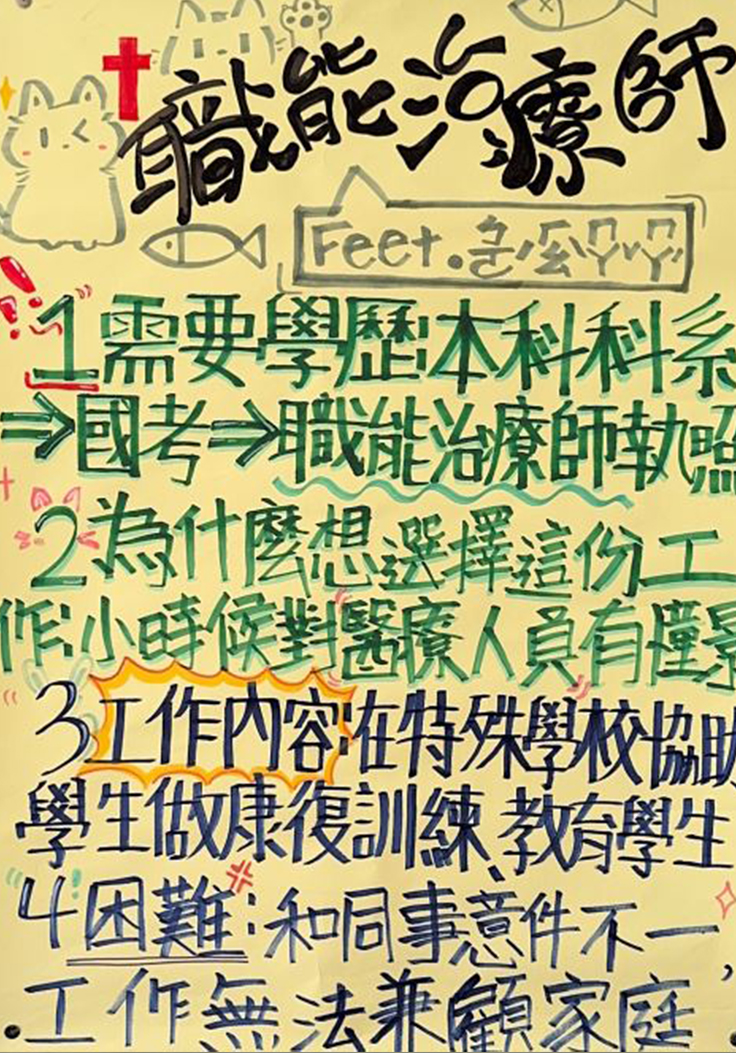 職能治療師
Feet.
1需要學歷:本科科系
⇒國考⇒職能治療師執照
2為什麼想選擇這份工
作:小時候對醫療人員有憧憬
3工作內容:在特殊學校協助
學生做康復訓練、教育學生
4困難:和同事意件不一,
工作無法兼顧家庭